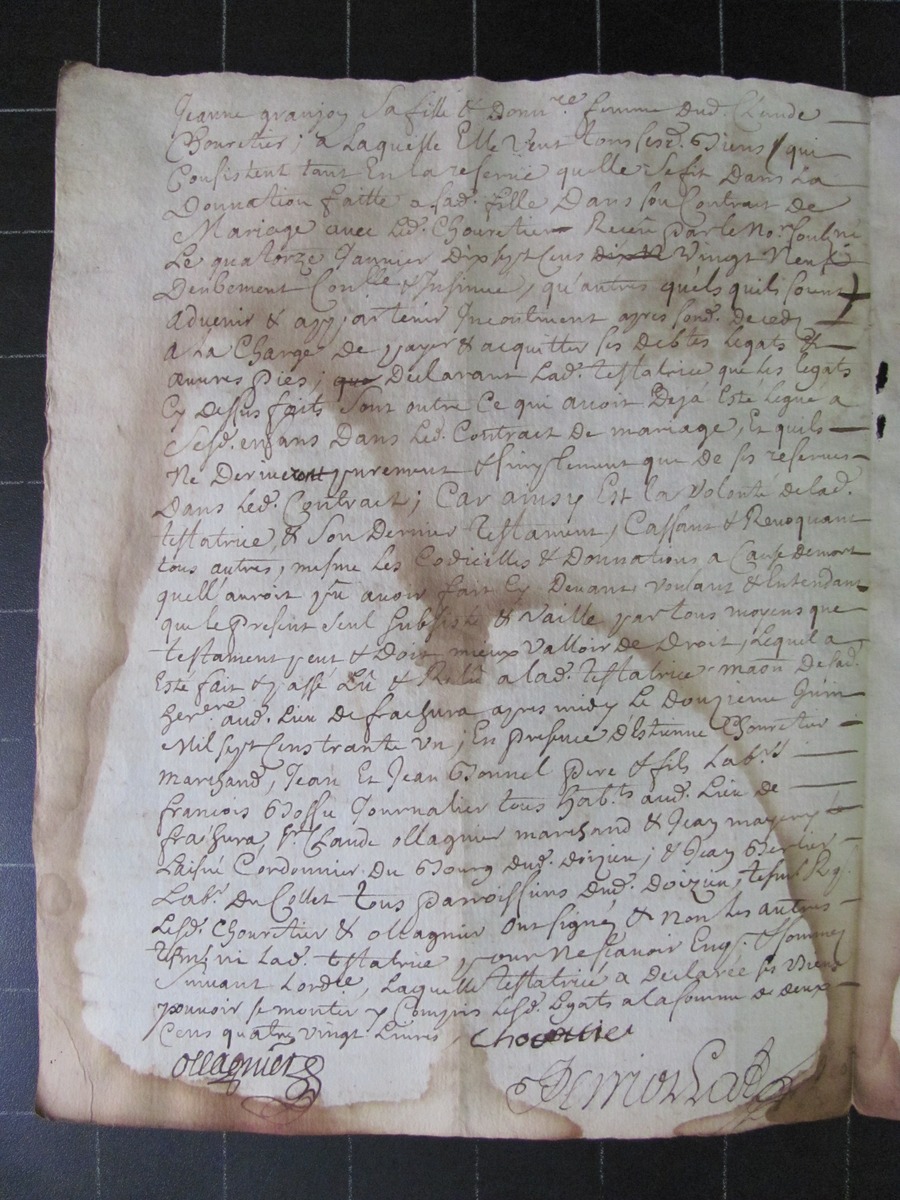 Jeanne granjon Sa fille & Donn.re femme dud. Claude
Chouretier; a Laquelle Elle Veut tous sesd. Biens qui
Consistent tant En la reserve quelle sefit Dans La
Donnation faitte a lad. fille Dans son Contrat de
Mariage avec led. Chouretier Receu par le No.re soubne
Le quatorze Janvier Dix sept cens Vingt Neuf
Deubement Con.lle & Insinue, qu'autres quels quils soient
advenir & appartenir Incontinent apres sond. decedz
a la Charge De payer & acquitter ses debtes legats &
œuvres pies; que Declarant Lad. testatrice que les legats
Cy dessus faits Sont outre Ce qui avoit Deja Esté Legué a
Sesd. enfans Dans Led. Contract de mariage, Et quils
Ne Deriveront purement & simplement que de ses reserves
Dans Led. Contract; Car ainsy Est la Volonté de lad.
testatrice, & Son Dernier testament, Cassant & Revoquant
tous autres, mesme les Codicilles & Donnations a Cause demort
quell'auroit pû avoir fait Cy Devant, voulant & Entendant
que le present seul subsiste & Vaille par tous moyens que
testament peut & Doit mieux Valloir de Droit, Lequel a
Esté fait & passé Lû & Relû a lad. testatrice maon De lad.
her.ere aud. Lieu de frachura apres midy Le Douzieme Juin
Mil sept cens trante un; En presence d'Estienne Chouretier
marchand, Jean Et Jean Bonnel pere & fils Lab.rs
francois Bossu Journalier tous hab.ts aud. Lieu de
frachura, S.r Claude ollagnier marchand & Jean mayery
Laisné Cordonnier du Bourg dud. doizieu; & Jean Berlier
Lab.r Du Collet tous parroissiens dud. doizieu, tesm.s Req.
Lesd. Chouretier & ollagnier ont signés & non les autres
tesm. ni Lad. testatrice pour Ne scavoir Enq. & sommez
Suivant Lordce, Laquelle testatrice a declarée ses Biens
pouvoir se monter y Compris lesd. Legats a la somme de deux
Cens quatre vingt Livres, Chouretier
ollagnier